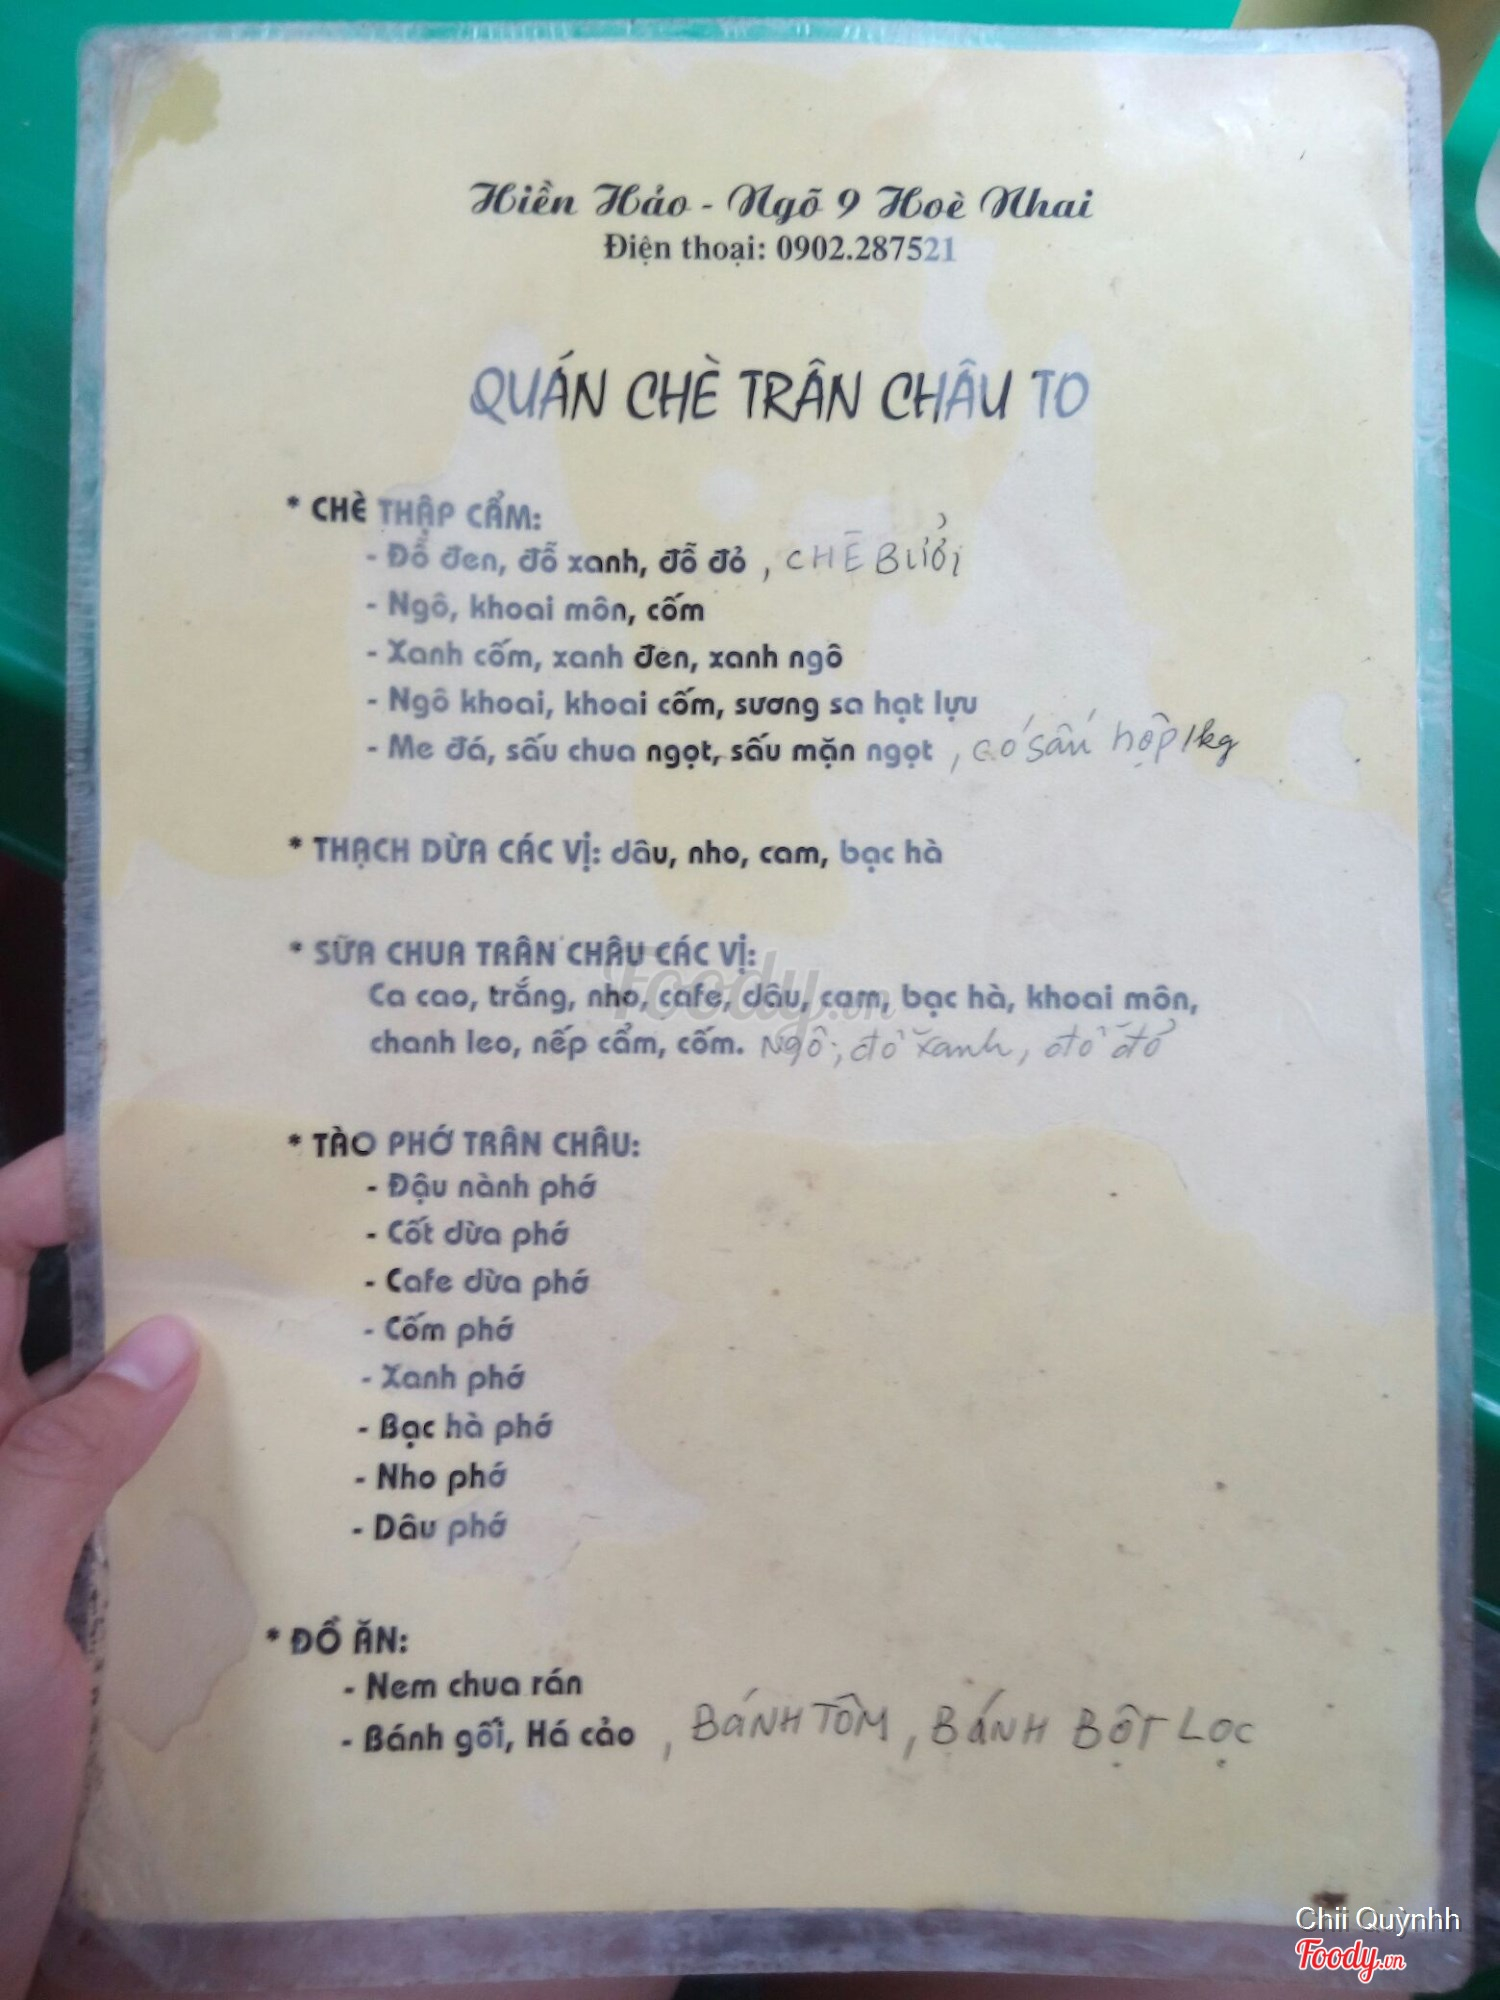 Hiền Hảo - Ngõ 9 Hoè Nhai
Điện thoại: 0902.287521
QUÁN CHÈ TRÂN CHÂU TO
* CHÈ THẬP CẨM:
- Đỗ đen, đỗ xanh, đỗ đỏ , CHÈ BƯỞI
- Ngô, khoai môn, cốm
- Xanh cốm, xanh đen, xanh ngô
- Ngô khoai, khoai cốm, sương sa hạt lựu
- Me đá, sấu chua ngọt, sấu mặn ngọt , có sấu hộp 1kg
* THẠCH DỪA CÁC VỊ: dâu, nho, cam, bạc hà
* SỮA CHUA TRÂN CHÂU CÁC VỊ:
Ca cao, trắng, nho, cafe, dâu, cam, bạc hà, khoai môn,
chanh leo, nếp cẩm, cốm. Ngô, đỗ xanh, đỗ đỏ
* TÀO PHỚ TRÂN CHÂU:
- Đậu nành phớ
- Cốt dừa phớ
- Cafe dừa phớ
- Cốm phớ
- Xanh phớ
- Bạc hà phớ
- Nho phớ
- Dâu phớ
* ĐỒ ĂN:
- Nem chua rán
- Bánh gối, Há cảo , BÁNH TÔM, BÁNH BỘT LỌC
Foody.vn
Chii Quỳnhh
Foody.vn